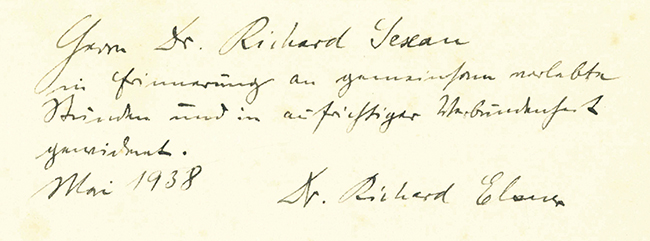 Herrn Dr. Richard Sexau
in Erinnerung an gemeinsam verlebte
Stunden und in aufrichtiger Verbundenheit
gewidmet.
Mai 1938 Dr. Richard Elsner